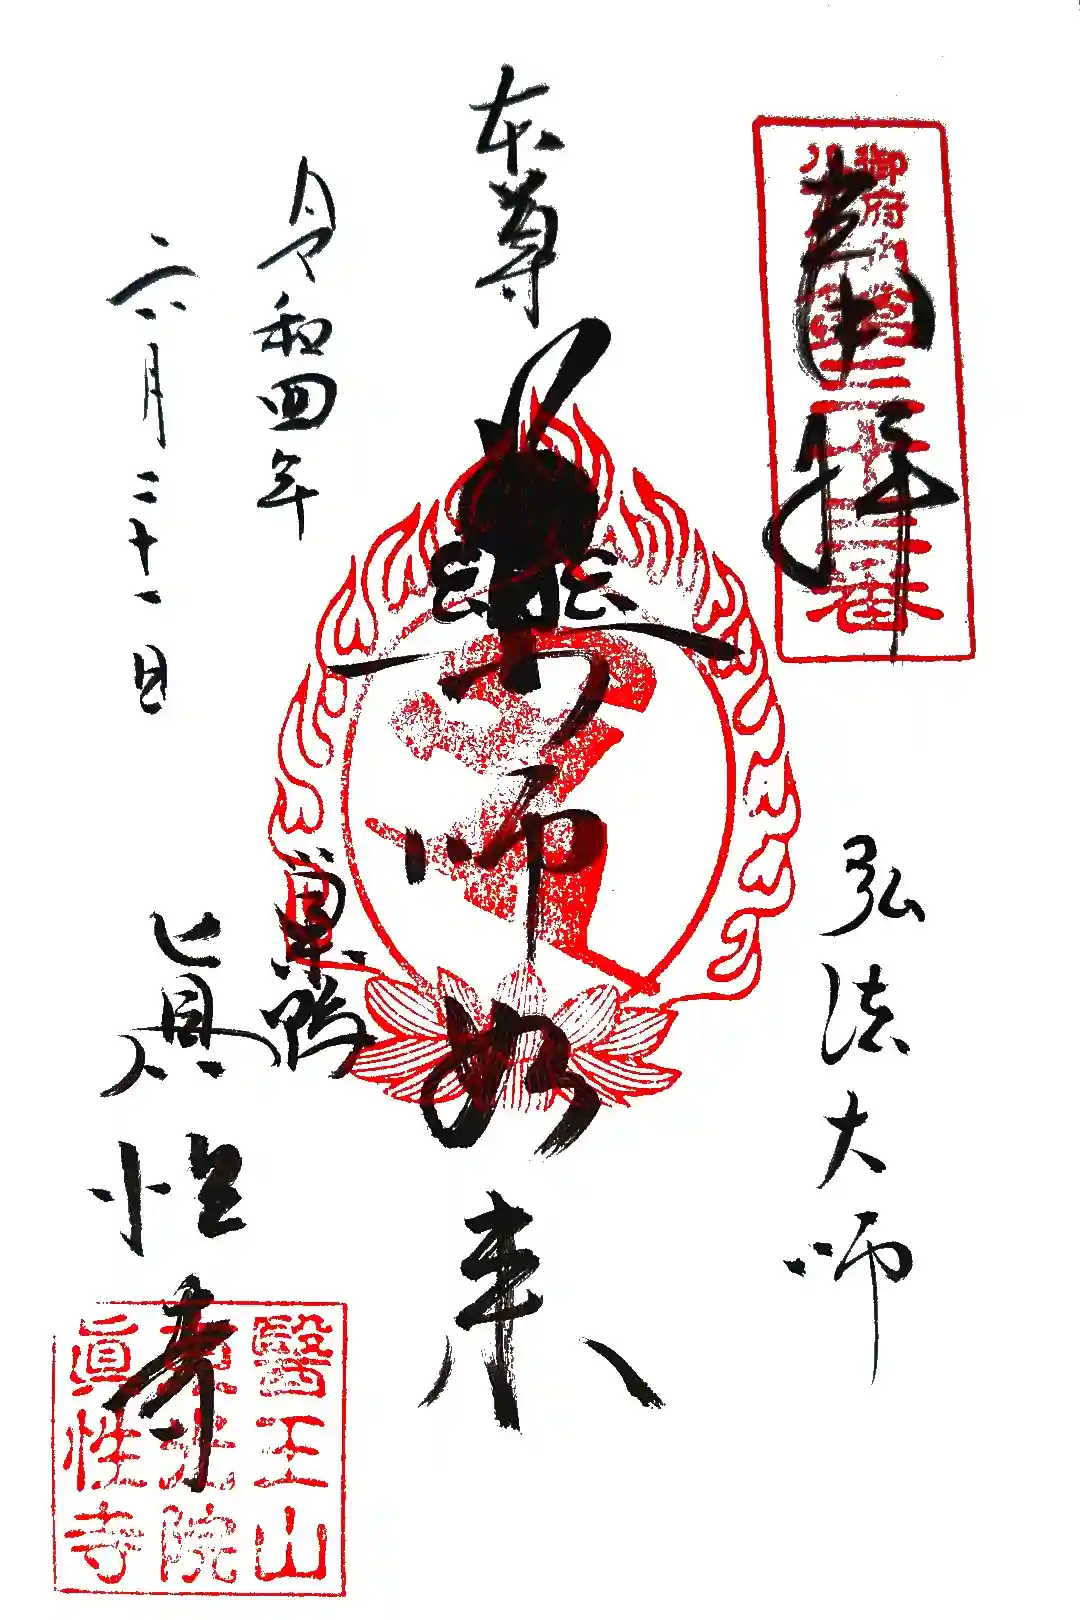 奉拝
御府内
第三十三番
弘法大師
本尊
藥師如来
令和四年
六月二十一日
巣鴨
眞性寺
醫王山
東光院
眞性寺